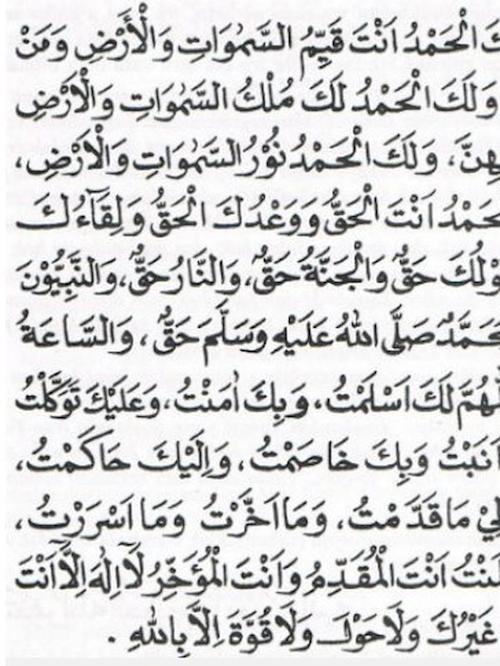 الْحَمْدُ اَنْتَ قَيِّمُ السَّمٰوَاتِ وَالْأَرْضِ وَمَنْ
وَلَكَ الْحَمْدُ لَكَ مُلْكُ السَّمٰوَاتِ وَالْأَرْضِ
هِنَّ، وَلَكَ الْحَمْدُ نُوْرُ السَّمٰوَاتِ وَالْأَرْضِ،
حَمْدُ اَنْتَ الْحَقُّ وَوَعْدُكَ الْحَقُّ وَلِقَآءُكَ
وْلُكَ حَقٌّ وَالْجَنَّةُ حَقٌّ، وَالنَّارُ حَقٌّ، وَالنَّبِيُّوْنَ
حَمَّدٌ صَلَّى اللهُ عَلَيْهِ وَسَلَّمَ حَقٌّ، وَالسَّاعَةُ
لّٰهُمَّ لَكَ اَسْلَمْتُ، وَبِكَ اٰمَنْتُ، وَعَلَيْكَ تَوَكَّلْتُ
اَنَبْتُ وَبِكَ خَاصَمْتُ، وَاِلَيْكَ حَاكَمْتُ،
لِيْ مَا قَدَّمْتُ، وَمَا اَخَّرْتُ وَمَا اَسْرَرْتُ،
لَنْتُ اَنْتَ الْمُقَدِّمُ وَاَنْتَ الْمُؤَخِّرُ لَآ اِلٰهَ اِلَّا اَنْتَ
غَيْرُكَ وَلَا حَوْلَ وَلَا قُوَّةَ اِلَّا بِاللهِ .